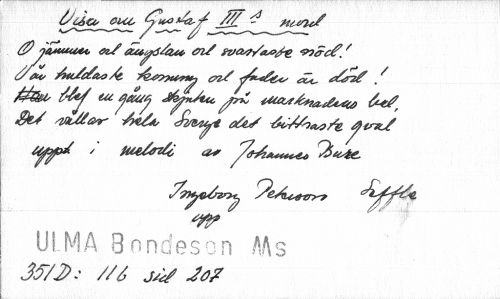 Visa om Gustaf III s mord
O jämmer och ängslan och svåraste nöd!
Vår huldaste konung och fader är död!
blef en gång skjuten på marknadens bal,
Det vållar hela Sverige det bittraste qval
uppt i melodi av Johannes Bure
Ingeborg Petersson Säffle
upp
ULMA Bondeson Ms
351D: 116 sid 207